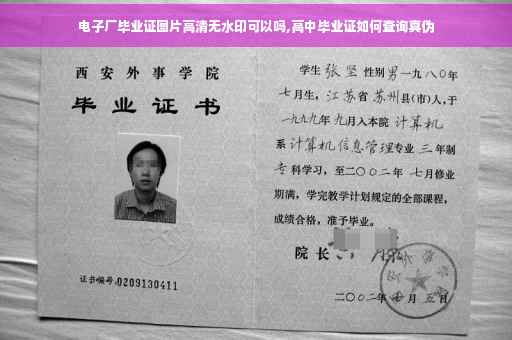 电子厂毕业证图片高清无水印可以吗,高中毕业证如何查询真伪
西安外事学院
毕业证书
证书编号:0209130411
学生 张坚 性别男 一九八〇年
七月生, 江苏省 苏州县(市)人, 于
一九九九年 九月入本院 计算机
系 计算机信息管理专业 三 年制
专 科学习, 至二〇〇二年 七月修业
期满, 学完教学计划规定的全部课程,
成绩合格, 准予毕业。
院长
二〇〇二年 月 五日